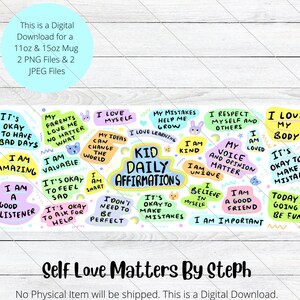 This is a Digital
Download for a
11oz & 15oz Mug
2 PNG Files & 2
JPEG Files
IT'S
OKAY
TO HAVE
BAD DAYS
MY
PARENTS
LOVE ME
NO MATTER
WHAT
I LOVE
MYSELF
MY MISTAKES
HELP ME
GROW
I RESPECT
MYSELF AND
OTHERS
I LOVE
MY
BODY
I LOVE LEARNING
MY IDEAS
CAN
CHANGE
THE
WORLD
I AM
KIND
MY
VOICE
AND
OPINION
MATTER
I AM
AMAZING
I AM
VALUABLE
KID
DAILY
AFFIRMATIONS
I AM
UNIQUE
I AM
A
GOOD
LISTENER
IT'S OKAY
TO FEEL
SAD
I AM
SMART
I
BELIEVE
IN
MYSELF
I AM
A GOOD
FRIEND
TODAY
GOING
BE
FUN
IT'S OKAY
TO ASK FOR
HELP
I DON'T
NEED TO
BE
PERFECT
IT'S
OKAY TO
MAKE
MISTAKES
I AM IMPORTANT
Self Love Matters By Steph
No Physical Item will be shipped. This is a Digital Download.